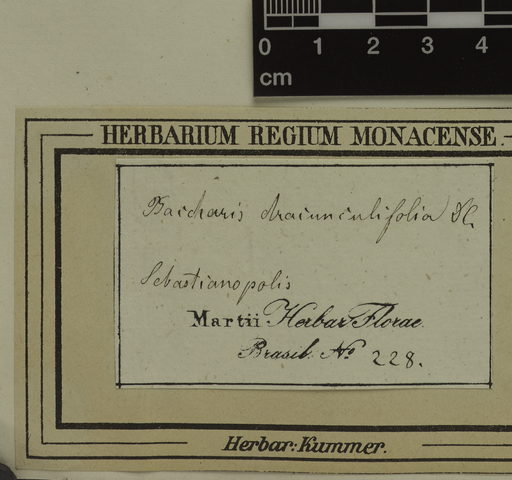 0 1 2 3 4
cm
HERBARIUM REGIUM MONACENSE.
Baccharis dracunculifolia DC
Sebastianopolis
Martii Herbar Florae
Brasil. No 228.
Herbar: Kummer.